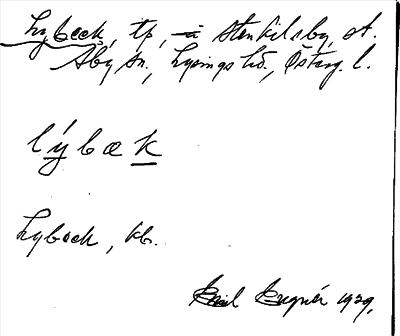 Lybeck, tp, å Stenkilsby, st.
Åby sn, Lysings hd., Österg. l.
lýbæk
Lybeck, kb.
Emil 1929.